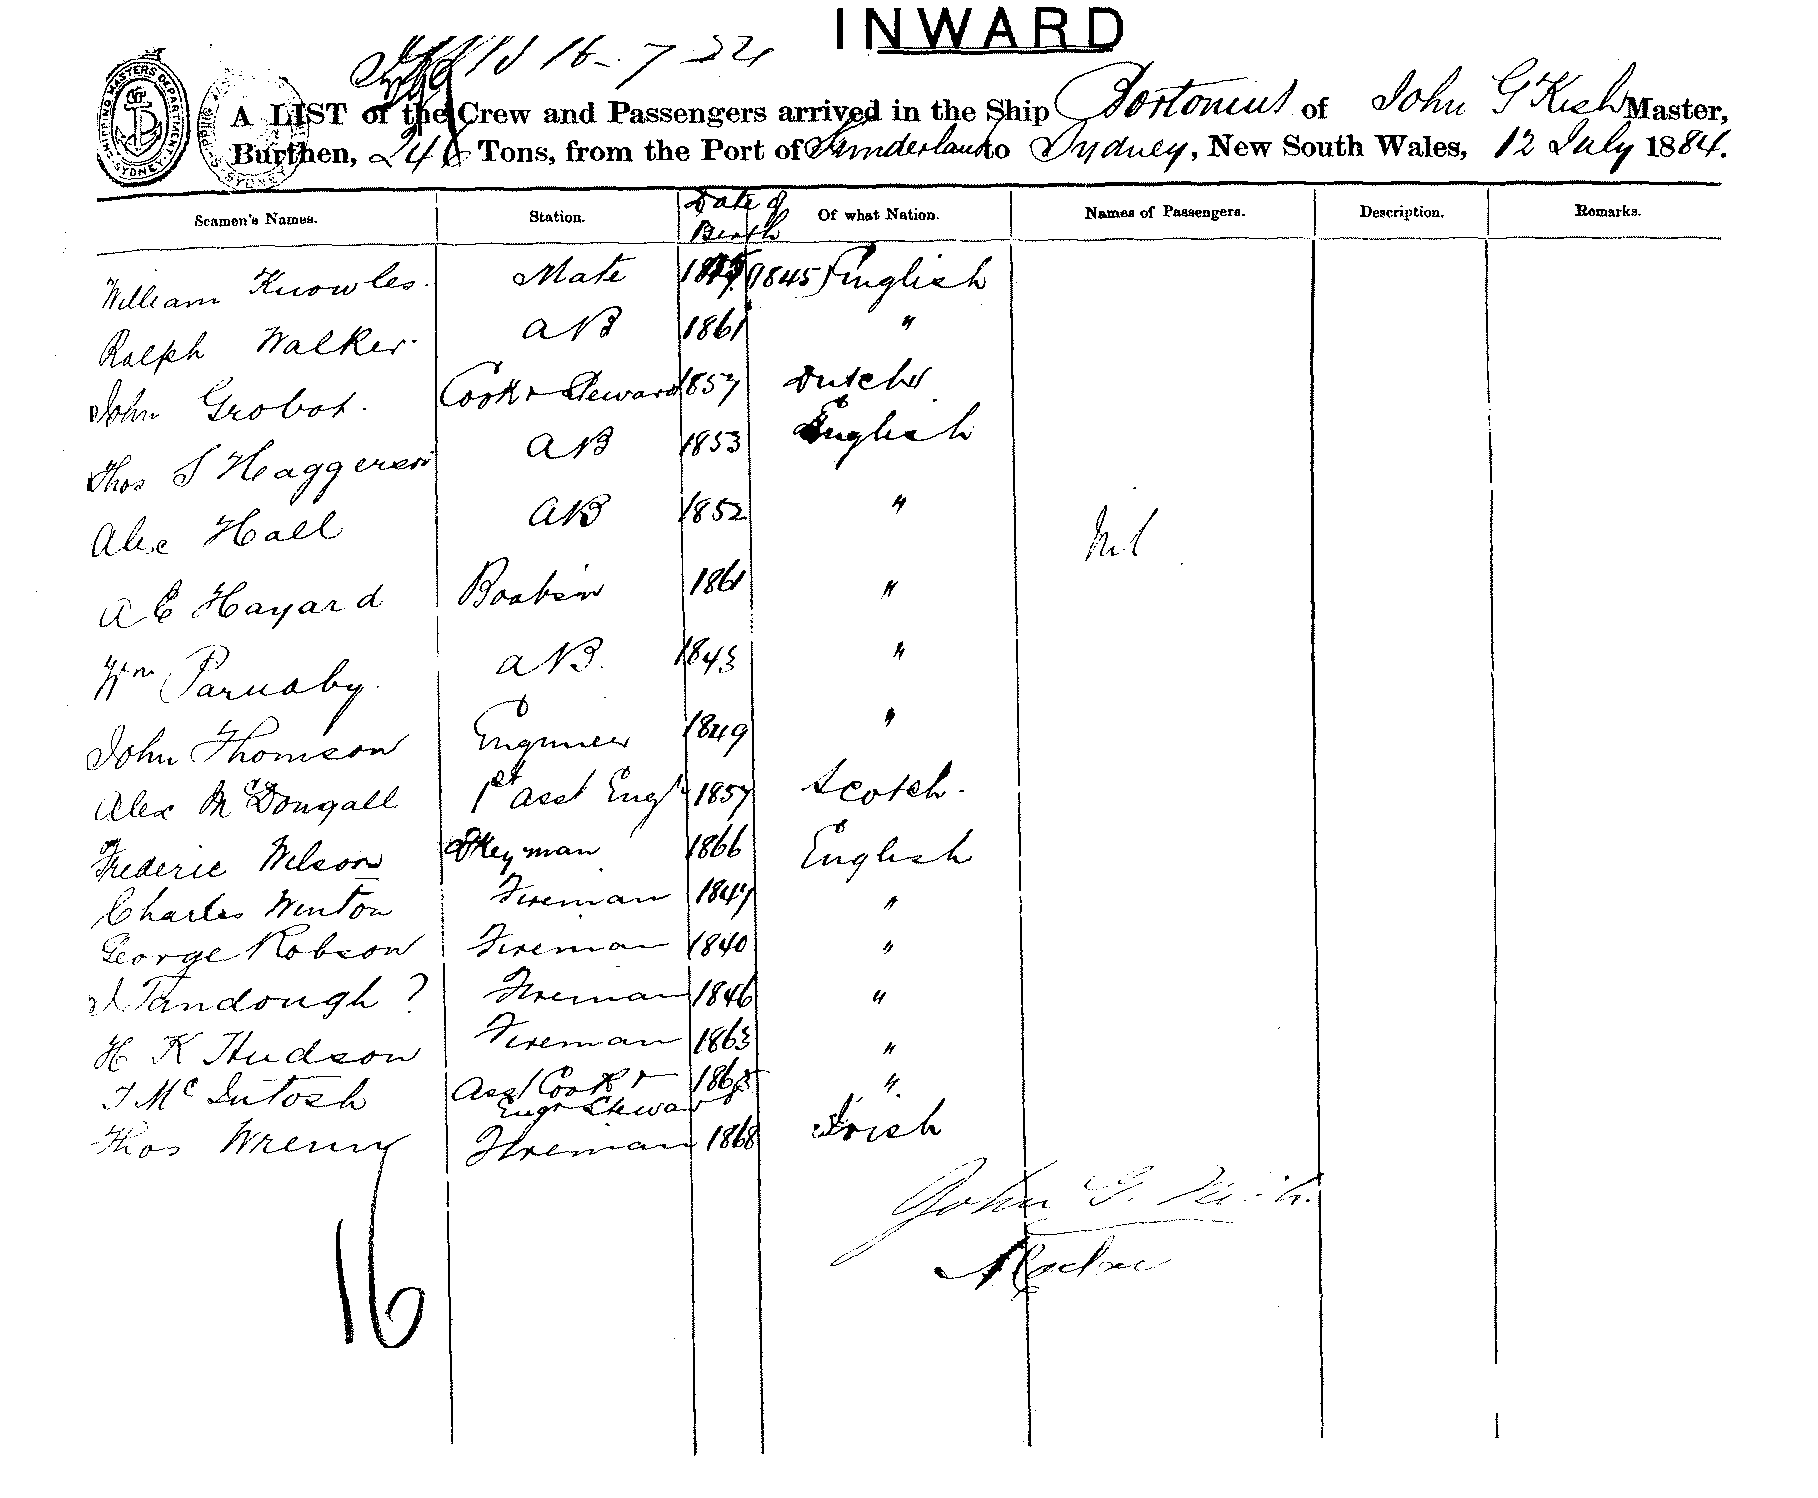 INWARD
16-7-84
SHIPPING MASTERS DEPARTMENT SYDNEY
A LIST of the Crew and Passengers arrived in the Ship Dortonius of John G Kish Master,
Burthen, Tons, from the Port of Sunderland to Sydney, New South Wales, 12 July 1884.
Seamen's Names. Station. Date of Birth Of what Nation. Names of Passengers. Description. Remarks.
William Knowles. Mate (1845) English
Ralph Walker. AB 1861 "
John Grobot. Cook & Steward 1857 Dutch
Thos S Haggerson AB 1853 English
Alex Hall AB 1852 "
Nil
A E Hayard Boatswn 1861 "
Wm Parnaby. AB. 1843 "
John Thomson Engineer 1849 "
Alex McDougall 1st asst Engr 1857 Scotch.
Frederic Wilson 1866 English
Charles Winton Fireman 1847 "
George Robson Fireman 1840 "
J Tandough ? Fireman 1846 "
H K Hudson Fireman 1863 "
J McIntosh Asst Cook & 1865 "
Engr Steward
Thos Wrenn Fireman 1868 Irish
John G. Kish.
Master
16